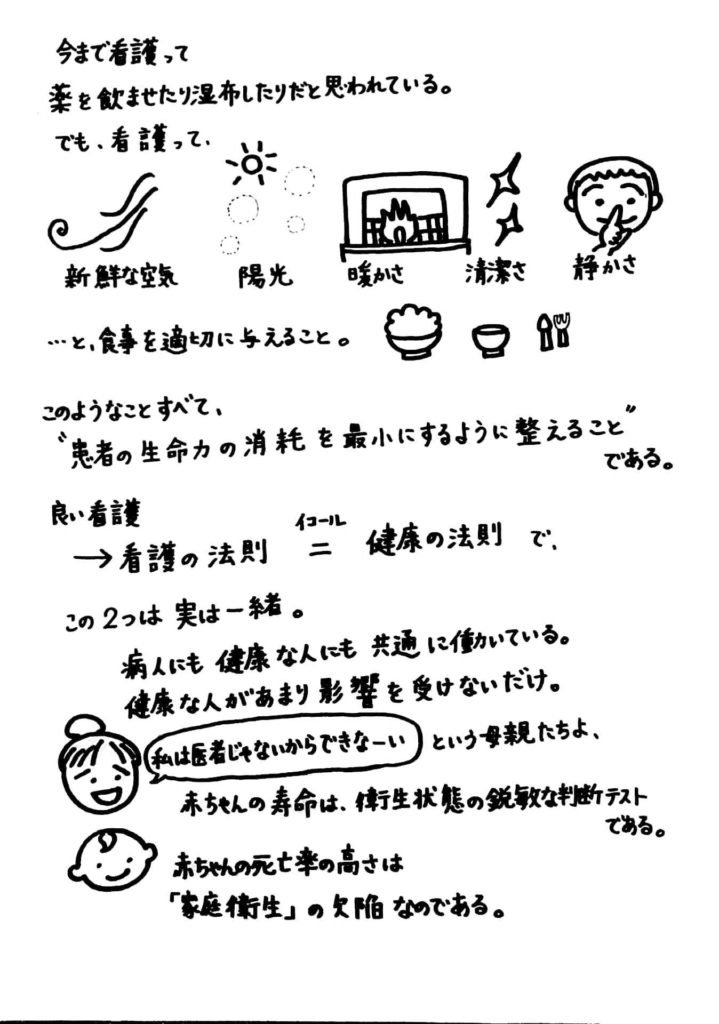 今まで看護って
薬を飲ませたり湿布したりだと思われている。
でも、看護って、
新鮮な空気 陽光 暖かさ 清潔さ 静かさ
…と、食事を適切に与えること。
このようなことすべて、
"患者の生命力の消耗を最小にするように整えること"
である。
良い看護
→看護の法則 イコール = 健康の法則 で、
この2つは実は一緒。
病人にも健康な人にも共通に働いている。
健康な人があまり影響を受けないだけ。
私は医者じゃないからできなーい という母親たちよ、
赤ちゃんの寿命は、衛生状態の鋭敏な判断テスト
である。
赤ちゃんの死亡率の高さは
「家庭衛生」の欠陥なのである。